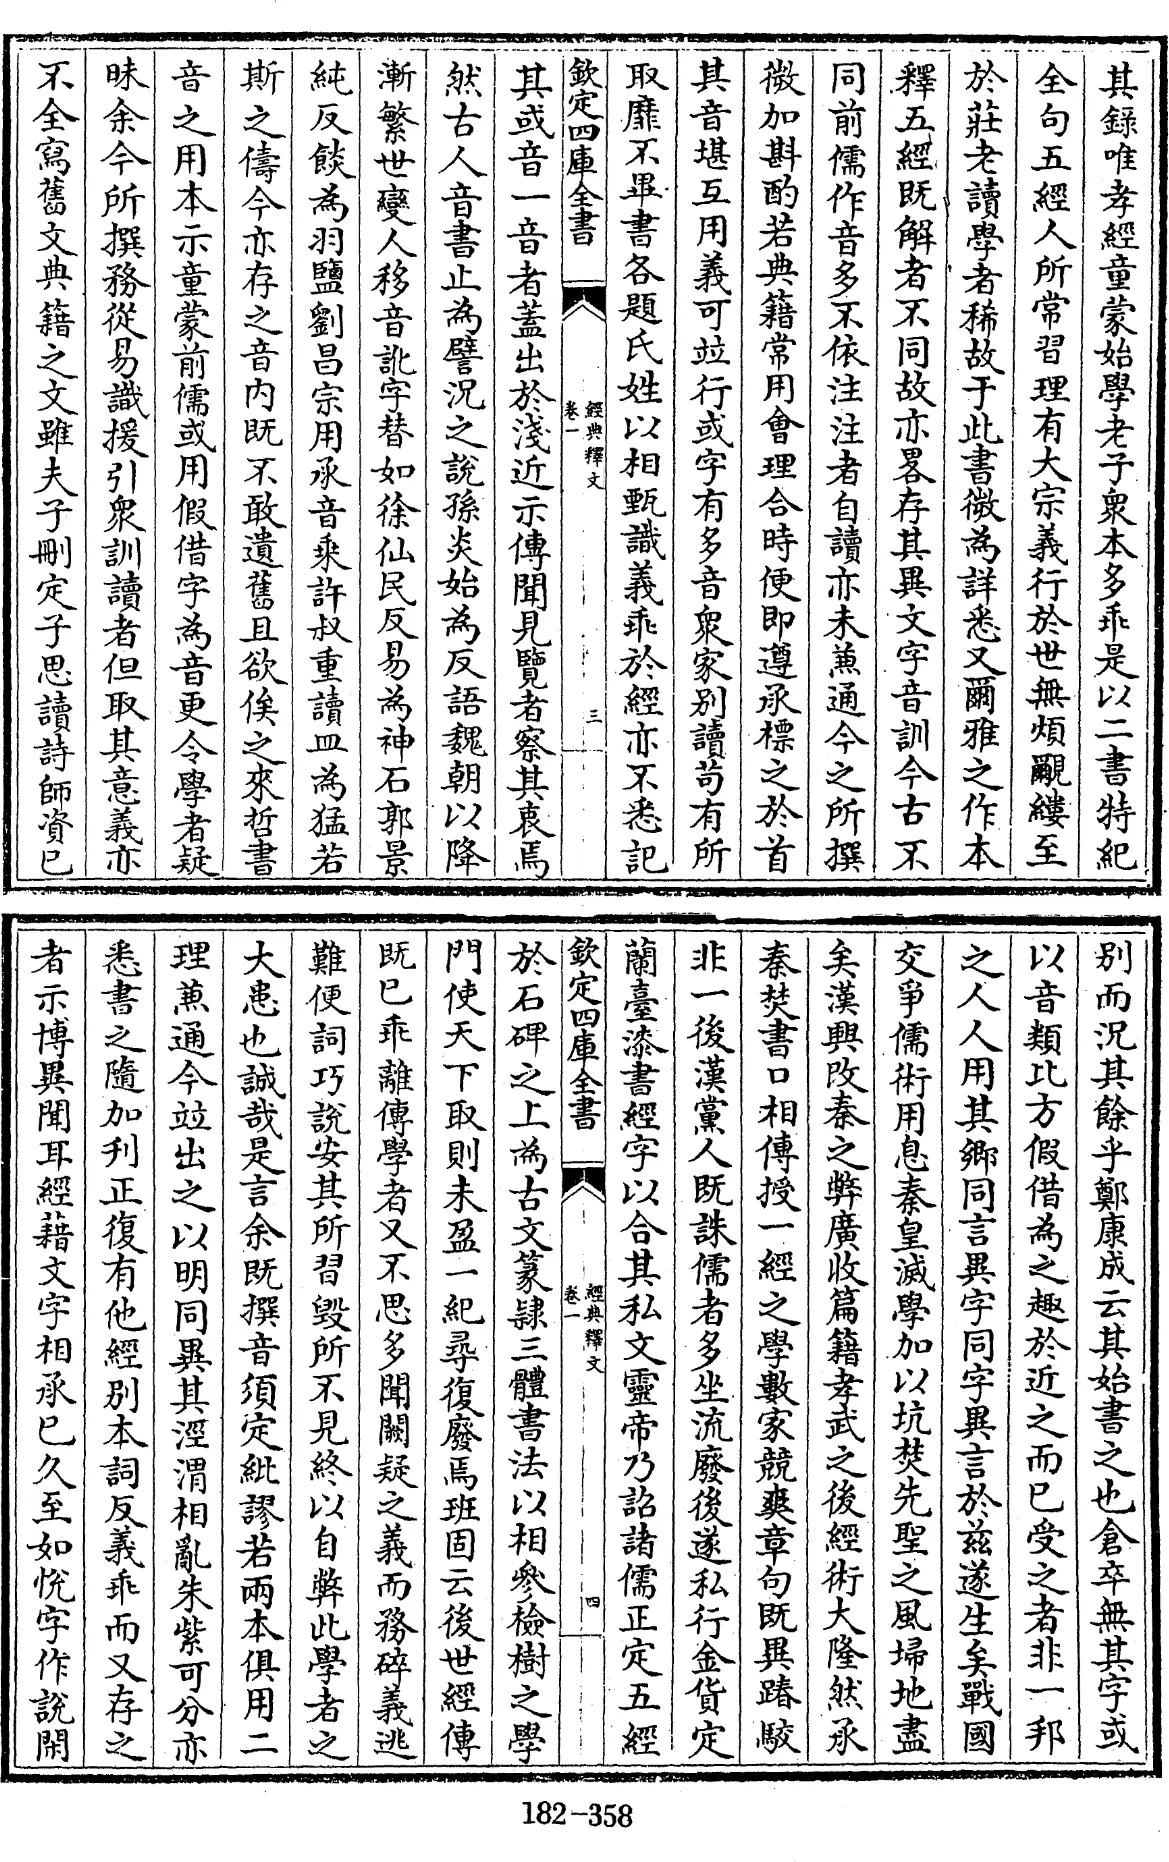 其錄唯孝經童蒙始學老子衆本多乖是以二書特紀
全句五經人所常習理有大宗義行於世無煩覼縷至
於莊老讀學者稀故于此書微為詳悉又爾雅之作本
釋五經既解者不同故亦畧存其異文字音訓今古不
同前儒作音多不依注注者自讀亦未兼通今之所撰
微加斟酌若典籍常用會理合時便即遵承標之於首
其音堪互用義可竝行或字有多音衆家別讀苟有所
取靡不畢書各題氏姓以相甄識義乖於經亦不悉記
欽定四庫全書
經典釋文
卷一
三
其或音一音者蓋出於淺近示傳聞見覽者察其衷焉
然古人音書止為譬況之說孫炎始為反語魏朝以降
漸繁世變人移音訛字替如徐仙民反易為神石郭景
純反餤為羽鹽劉昌宗用承音乘許叔重讀皿為猛若
斯之儔今亦存之音內既不敢遺舊且欲俟之來哲書
音之用本示童蒙前儒或用假借字為音更令學者疑
昧余今所撰務從易識援引衆訓讀者但取其意義亦
不全寫舊文典籍之文雖夫子刪定子思讀詩師資已
別而況其餘乎鄭康成云其始書之也倉卒無其字或
以音類比方假借為之趣於近之而已受之者非一邦
之人人用其鄉同言異字同字異言於茲遂生矣戰國
交爭儒術用息秦皇滅學加以坑焚先聖之風埽地盡
矣漢興改秦之弊廣收篇籍孝武之後經術大隆然承
秦焚書口相傳授一經之學數家競爽章句既異踳駮
非一後漢黨人既誅儒者多坐流廢後遂私行金貨定
蘭臺漆書經字以合其私文靈帝乃詔諸儒正定五經
欽定四庫全書
經典釋文
卷一
四
於石碑之上為古文篆隷三體書法以相參檢樹之學
門使天下取則未盈一紀尋復廢焉班固云後世經傳
既已乖離傳學者又不思多聞闕疑之義而務碎義逃
難便詞巧說安其所習毀所不見終以自弊此學者之
大患也誠哉是言余既撰音須定紕謬若兩本俱用二
理兼通今竝出之以明同異其涇渭相亂朱紫可分亦
悉書之隨加刋正復有他經別本詞反義乖而又存之
者示博異聞耳經藉文字相承已久至如悅字作說閑
182-358